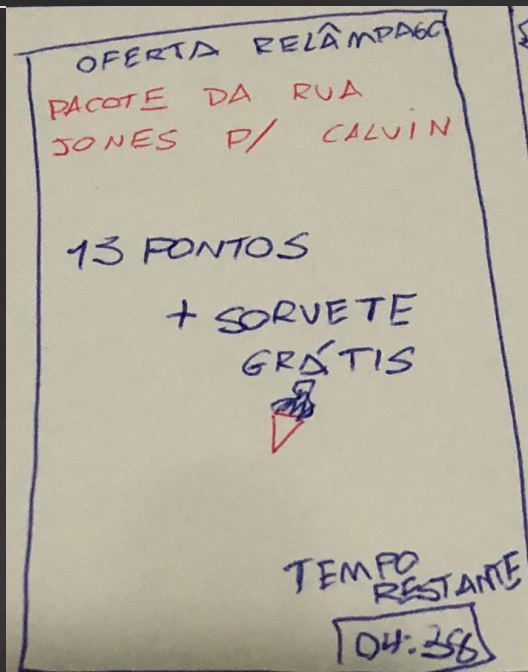 OFERTA RELÂMPAGO
PACOTE DA RUA
JONES P/ CALVIN
13 PONTOS
+ SORVETE
GRÁTIS
TEMPO
RESTANTE